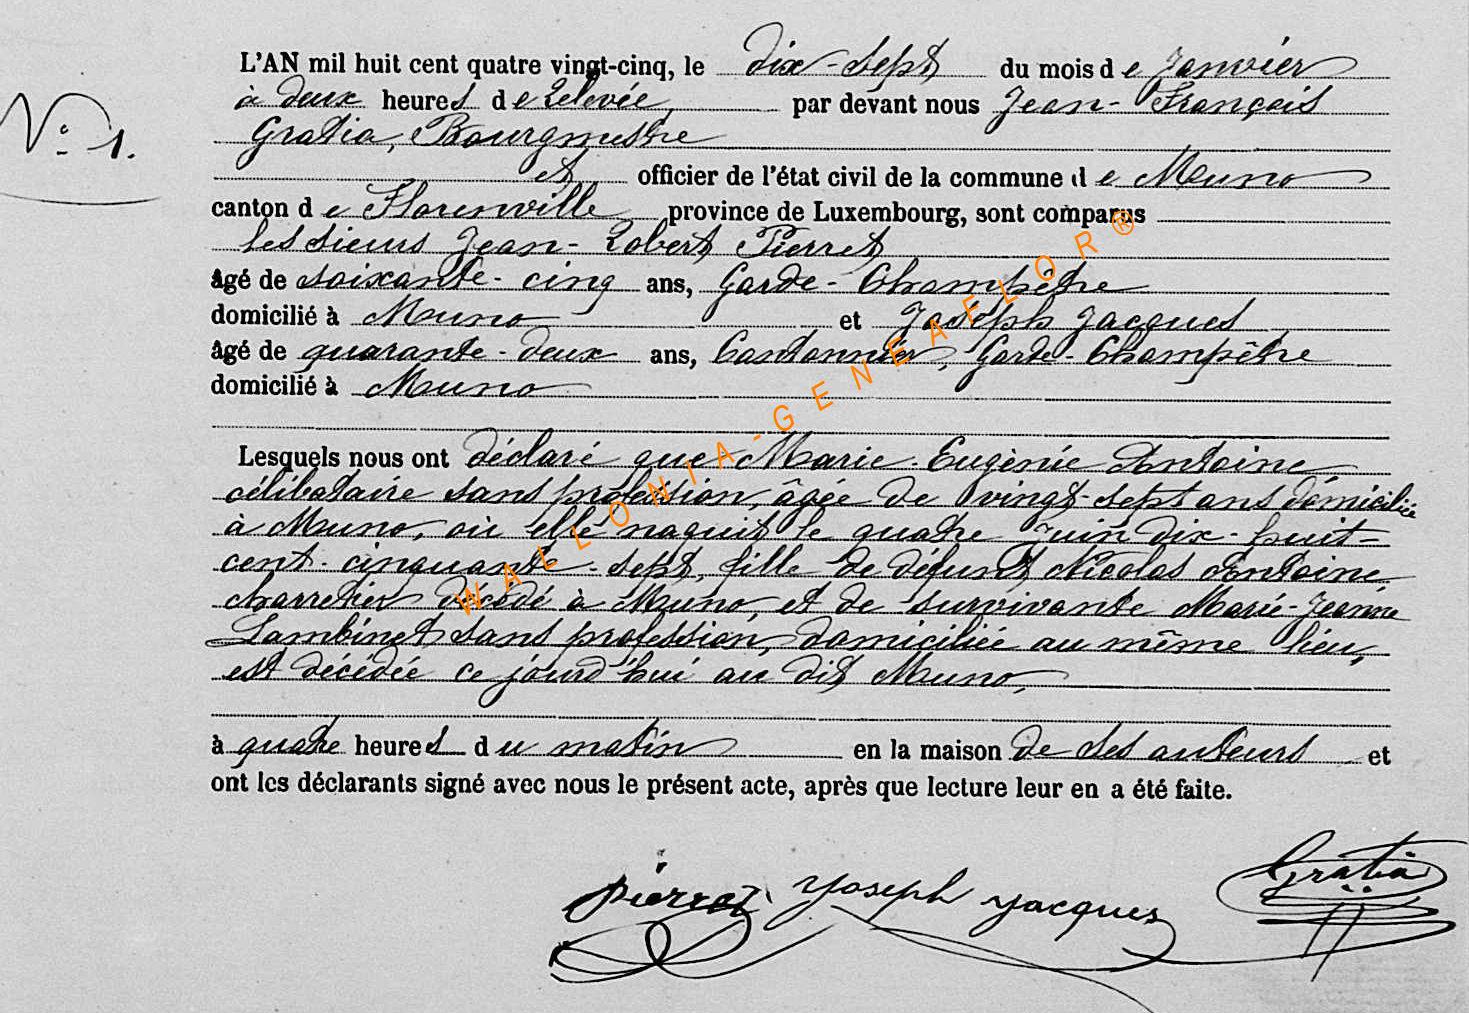 L'AN mil huit cent quatre vingt-cinq, le dix-sept du mois de Janvier
à deux heures de relevée par devant nous Jean-François
N° 1.
Gratia, Bourgmestre
et officier de l'état civil de la commune de Muno
canton de Florenville, province de Luxembourg, sont comparus
les sieurs Jean-Robert Pierret
âgé de soixante-cinq ans, Garde-Champêtre
domicilié à Muno et Joseph Jacques
âgé de quarante-deux ans, Cantonnier, Garde-Champêtre
domicilié à Muno
Lesquels nous ont déclaré que Marie-Eugènie Antoine
célibataire sans profession, âgée de vingt-sept ans domiciliée
à Muno, où elle naquit le quatre Juin dix-huit-
cent-cinquante-sept, fille de défunt Nicolas Antoine
charretier décédé à Muno, et de survivante Marie-Jeanne
Lambinet, sans profession, domiciliée au même lieu,
est décédée ce jourd'hui au dit Muno,
à quatre heures du matin en la maison de ses auteurs et
ont les déclarants signé avec nous le présent acte, après que lecture leur en a été faite.
Pierret Joseph Jacques Gratia
WALLONIA-GENEAFLOR®